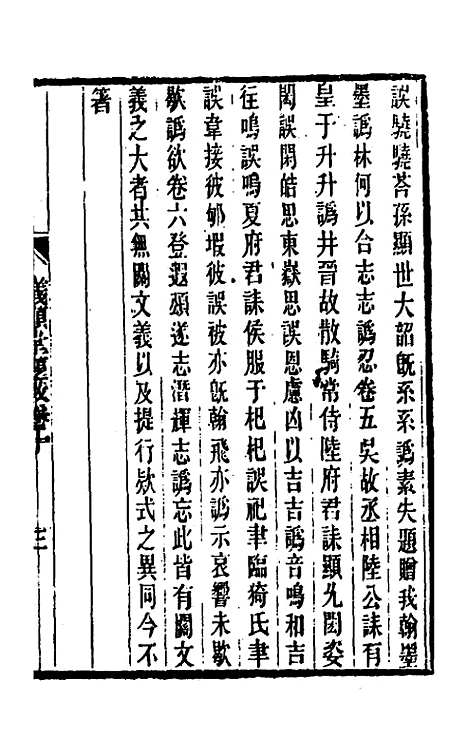 誤驍驍荅孫顯世大韶旣系系譌素失題贈我翰墨
墨譌林何以合志志譌忍卷五吳故丞相陸公誄有
皇于升升譌井晉故散騎常侍陸府君誄顯允閎姿
閎誤閑皓思東嶽思誤恩慮凶以吉吉譌音鳴和吉
往鳴誤嗚夏府君誄侯服于杞杞誤祀聿臨猗氏聿
誤韋接彼郇瑕彼誤被亦旣翰飛亦譌示哀響未歇
歇譌欲卷六登遐頌遂志潛輝志譌忘此皆有關文
義之大者其無關文義以及提行欵式之異同今不
箸
儀顧堂題跋卷十